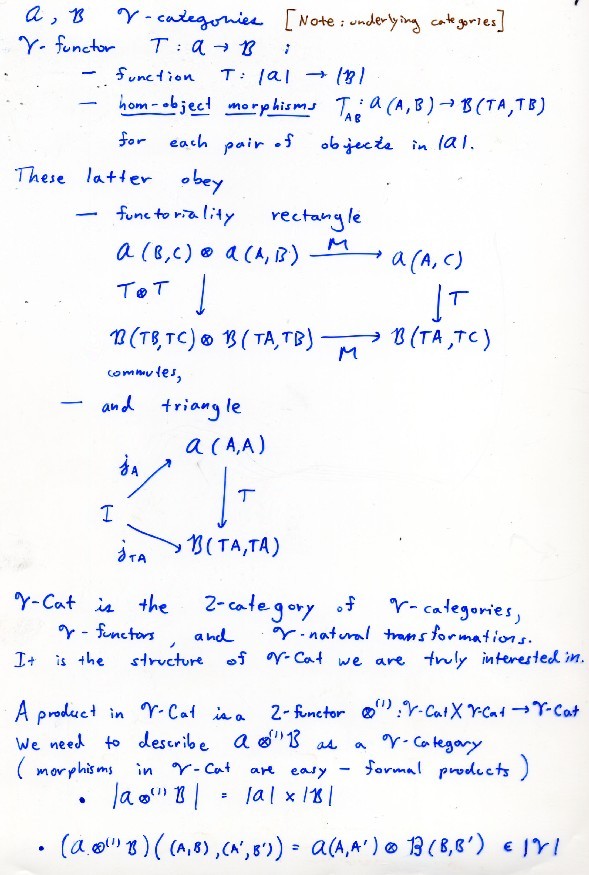 𝒜, ℬ 𝒱-categories [Note: underlying categories]
𝒱-functor T : 𝒜 → ℬ ;
— function T : |𝒜| → |ℬ|
— hom-object morphisms T_AB : 𝒜(A,B) → ℬ(TA,TB)
for each pair of objects in |𝒜|.
These latter obey
— functoriality rectangle
𝒜(B,C) ⊗ 𝒜(A,B) M → 𝒜(A,C)
T⊗T ↓ ↓ T
ℬ(TB,TC) ⊗ ℬ(TA,TB) → M ℬ(TA,TC)
commutes,
— and triangle
𝒜(A,A)
j_A
↓ T
I
j_TA ℬ(TA,TA)
𝒱-Cat is the 2-category of 𝒱-categories,
𝒱-functors, and 𝒱-natural transformations.
It is the structure of 𝒱-Cat we are truly interested in.
A product in 𝒱-Cat is a 2-functor ⊗⁽¹⁾ : 𝒱-Cat × 𝒱-Cat → 𝒱-Cat
We need to describe 𝒜 ⊗⁽¹⁾ ℬ as a 𝒱-Category
(morphisms in 𝒱-Cat are easy – formal products)
• |𝒜 ⊗⁽¹⁾ ℬ| = |𝒜| × |ℬ|
• (𝒜 ⊗⁽¹⁾ ℬ)((A,B),(A',B')) = 𝒜(A,A') ⊗ ℬ(B,B') ∈ |𝒱|